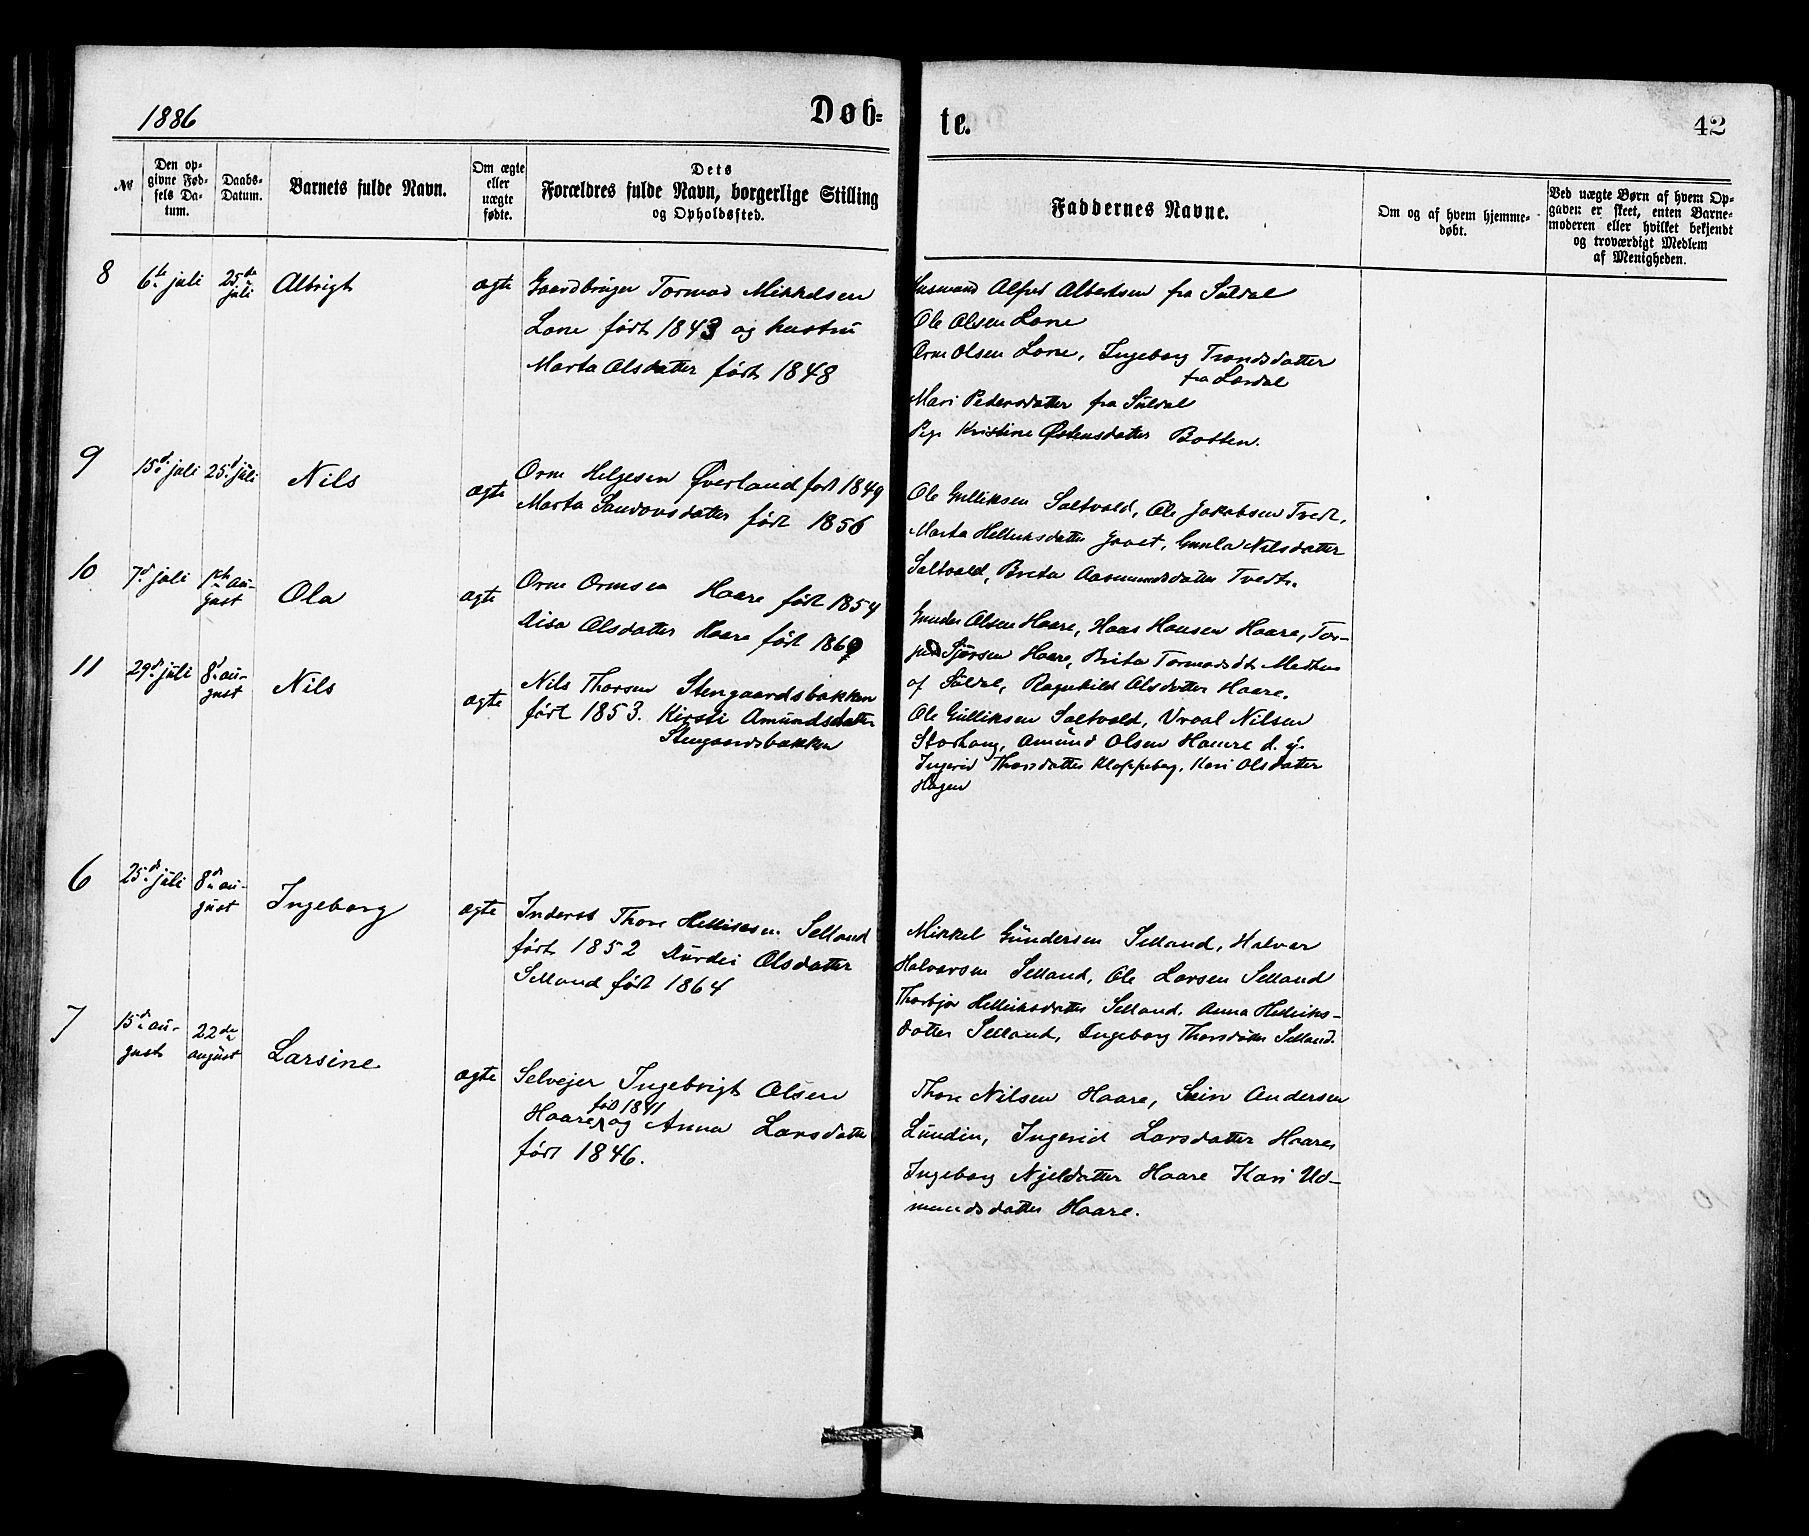 1886
Døb=
te.
42
№
Den op=
givne Fød=
sels Da=
tum.
Daabs=
Datum.
Barnets fulde Navn.
Om ægte
eller
uægte
fødte.
Dets
Forældres fulde Navn, borgerlige Stilling
og Opholdssted.
Faddernes Navne.
Om og af hvem hjemme=
døbt.
Ved uægte Børn af hvem Op=
gaven er skeet, enten Barne=
moderen eller hvilket bekjendt
og troværdigt Medlem
af Menigheden.
8
6te juli
25de
juli
Albrigt
ægte
Gaardbruger Tormod Mikkelsen
Lone født 1843 og hustru
Marta Olsdatter født 1848
Husmand Alfred Albertsen fra Suldal
Ole Olsen Lone
Orm Olsen Lone, Ingeborg Trondsdatter
Mari Pedersdatter fra Suldal
Pige Kristine Østensdatter Botten.
9
15d juli
25d juli
Nils
ægte
Orm Helgesen Øverland født 1849
Marta Sandovsdatter født 1856
Ole Gulliksen Saltvold, Ole Jakobsen Tvedt,
Marta Helleiksdatter Gunla Nilsdatter
Saltvold, Brita Aasmundsdatter Tvedt.
10
7d juli
1ste au-
gust
Ola
ægte
Orm Ormsen Haare født 1854
Olsdatter Haare født
Gunder Olsen Haare, Hans Hansen Haare, Tor-
Haare, Brita Tormodsdt
af Suldal, Ragnhild Olsdatter Haare.
11
29de juli
8d au-
gust
Nils
ægte
Nils Thorsen Stengaardsbakken
født 1853. Kirsti Amundsdatter
Stengaardsbakken
Ole Gulliksen Saltvold, Vraal Nilsen
Storhaug, Amund Olsen Haare d. y.
Ingerid Thorsdatter Kloppeberg, Kari Olsdatter
Hagen
6
25de juli
8de au-
gust
Ingeborg
ægte
Inderst Thore Helliksen Selland
født 1852 Olsdatter
Selland født 1864
Mikkel Gundersen Selland, Halvor
Halvorsen Selland, Ole Larsen Selland
Thorbjør Helleiksdatter Selland, Anna Helleiks-
datter Selland, Ingeborg Thorsdatter Selland.
7
15de au-
gust
22de
august
Larsine
ægte
Selvejer Ingebrigt Olsen
fød 1841
Haare og Anna Larsdatter
født 1846.
Thore Nilsen Haare, Svein Andersen
Lundin, Ingerid Larsdatter Haare
Ingeborg Njelsdatter Haare Kari Ud-
mundsdatter Haare.